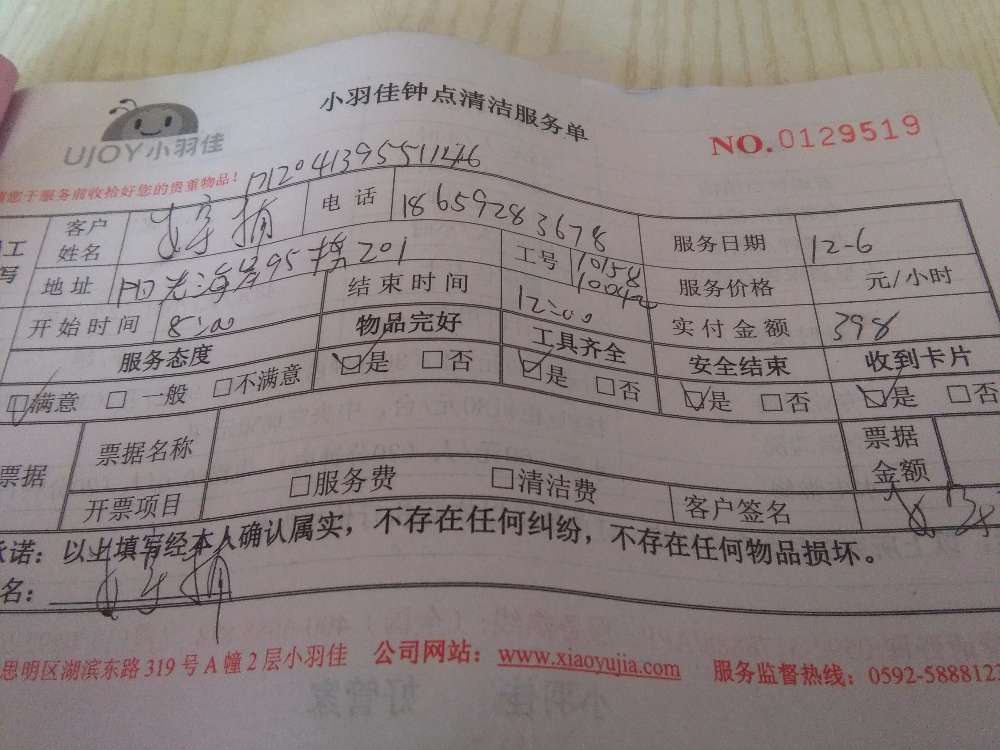 小羽佳钟点清洁服务单
UJOY小羽佳
NO.0129519
您于服务前收拾好您的贵重物品!
客户姓名 电话 18659283678 服务日期 12-6
地址 阳光海岸95栋201 工号 10158 服务价格 元/小时
开始时间 8:00 结束时间 12:00 实付金额 398
服务态度 物品完好 工具齐全 安全结束 收到卡片
☑满意 □一般 □不满意 ☑是 □否 ☑是 □否 ☑是 □否 ☑是 □否
票据 票据名称 票据金额
开票项目 □服务费 □清洁费 客户签名
承诺：以上填写经本人确认属实，不存在任何纠纷，不存在任何物品损坏。
名：
思明区湖滨东路319号A幢2层小羽佳 公司网站：www.xiaoyujia.com 服务监督热线：0592-588812